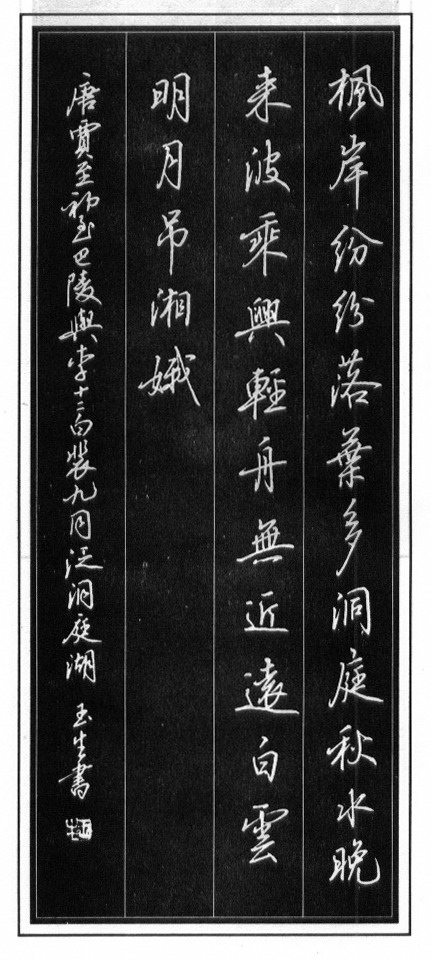 楓岸紛紛落葉多洞庭秋水晚
来波乘興輕舟無近遠白雲
明月吊湘娥
唐賈至初至巴陵與李十二白裴九同泛洞庭湖 玉生書